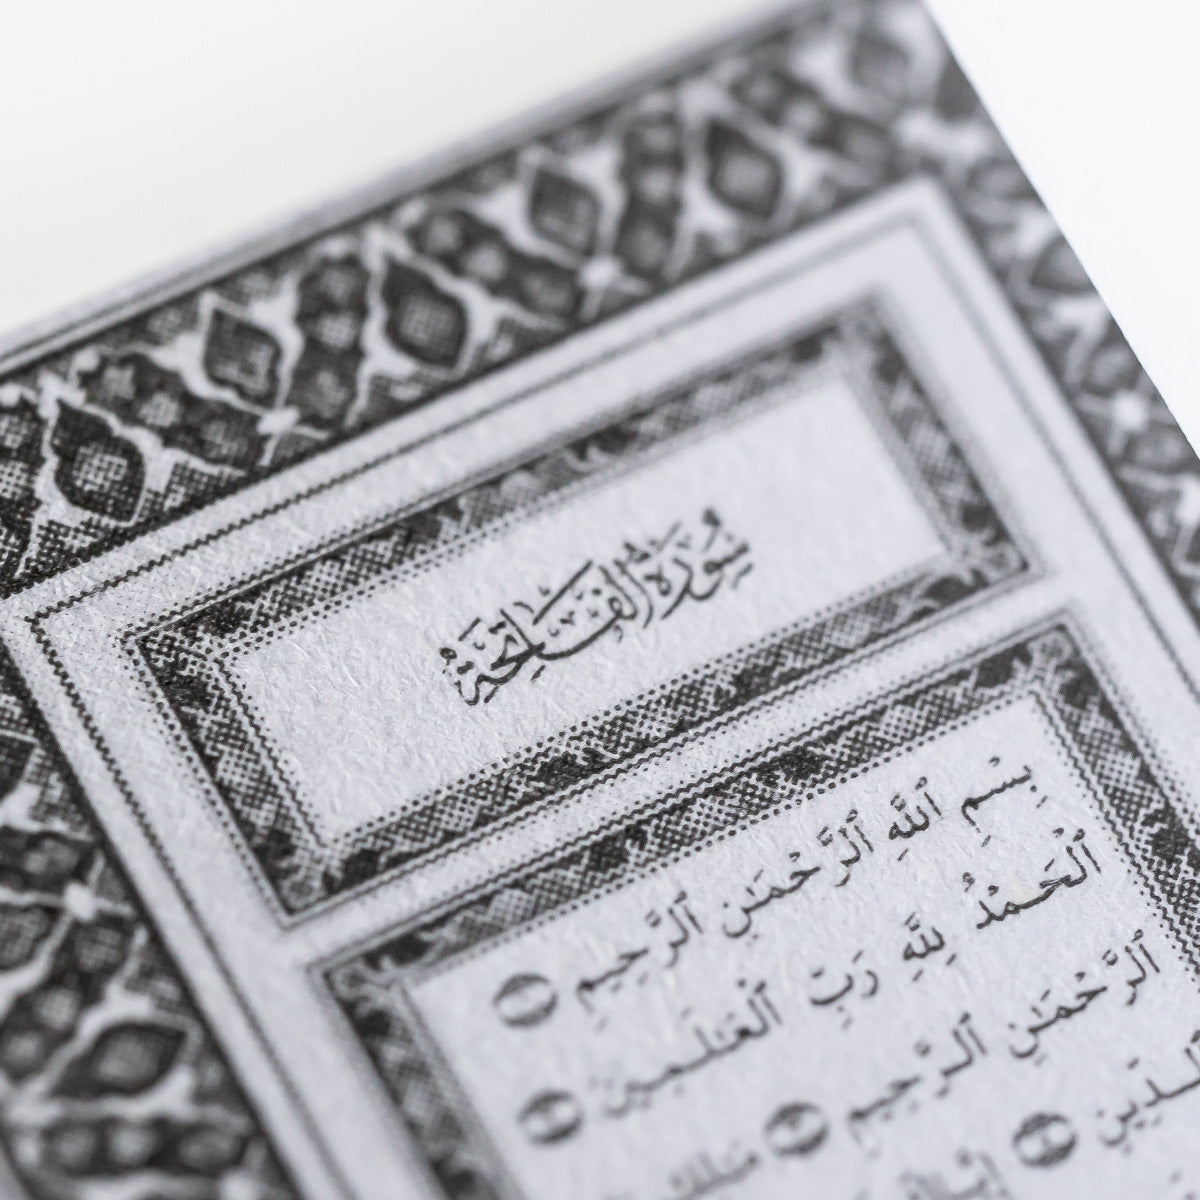 سُورَةُ الْفَاتِحَةِ
بِسْمِ ٱللَّهِ ٱلرَّحْمَٰنِ ٱلرَّحِيمِ ١
ٱلْحَمْدُ لِلَّهِ رَبِّ ٱلْعَٰلَمِينَ ٢
ٱلرَّحْمَٰنِ ٱلرَّحِيمِ ٣ مَٰلِكِ
ٱلدِّينِ ٤